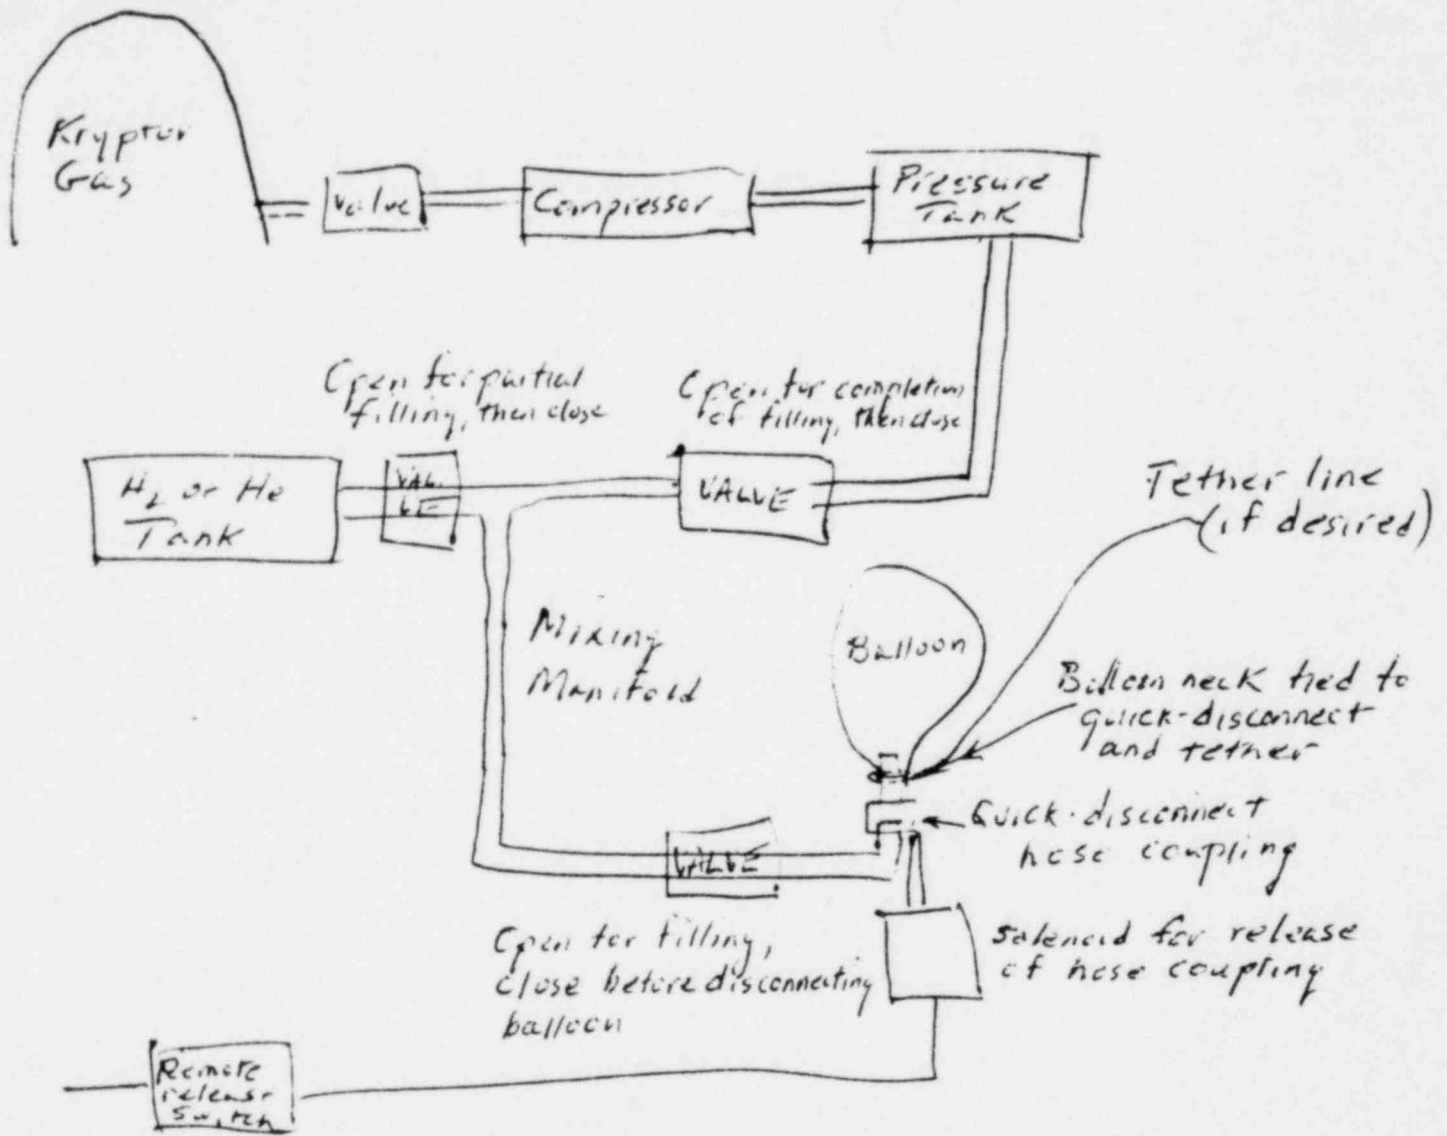 Krypton
Gas
Valve
Compressor
Pressure
Tank
Open for partial
filling, then close
Open for completion
of filling, then close
H2 or He
Tank
VAL
VE
VALVE
Tether line
(if desired)
Mixing
Manifold
Balloon
Balloon neck tied to
quick-disconnect
and tether
Quick-disconnect
hose coupling
VALVE
Open for filling,
close before disconnecting
balloon
Solenoid for release
of hose coupling
Remote
release
Switch